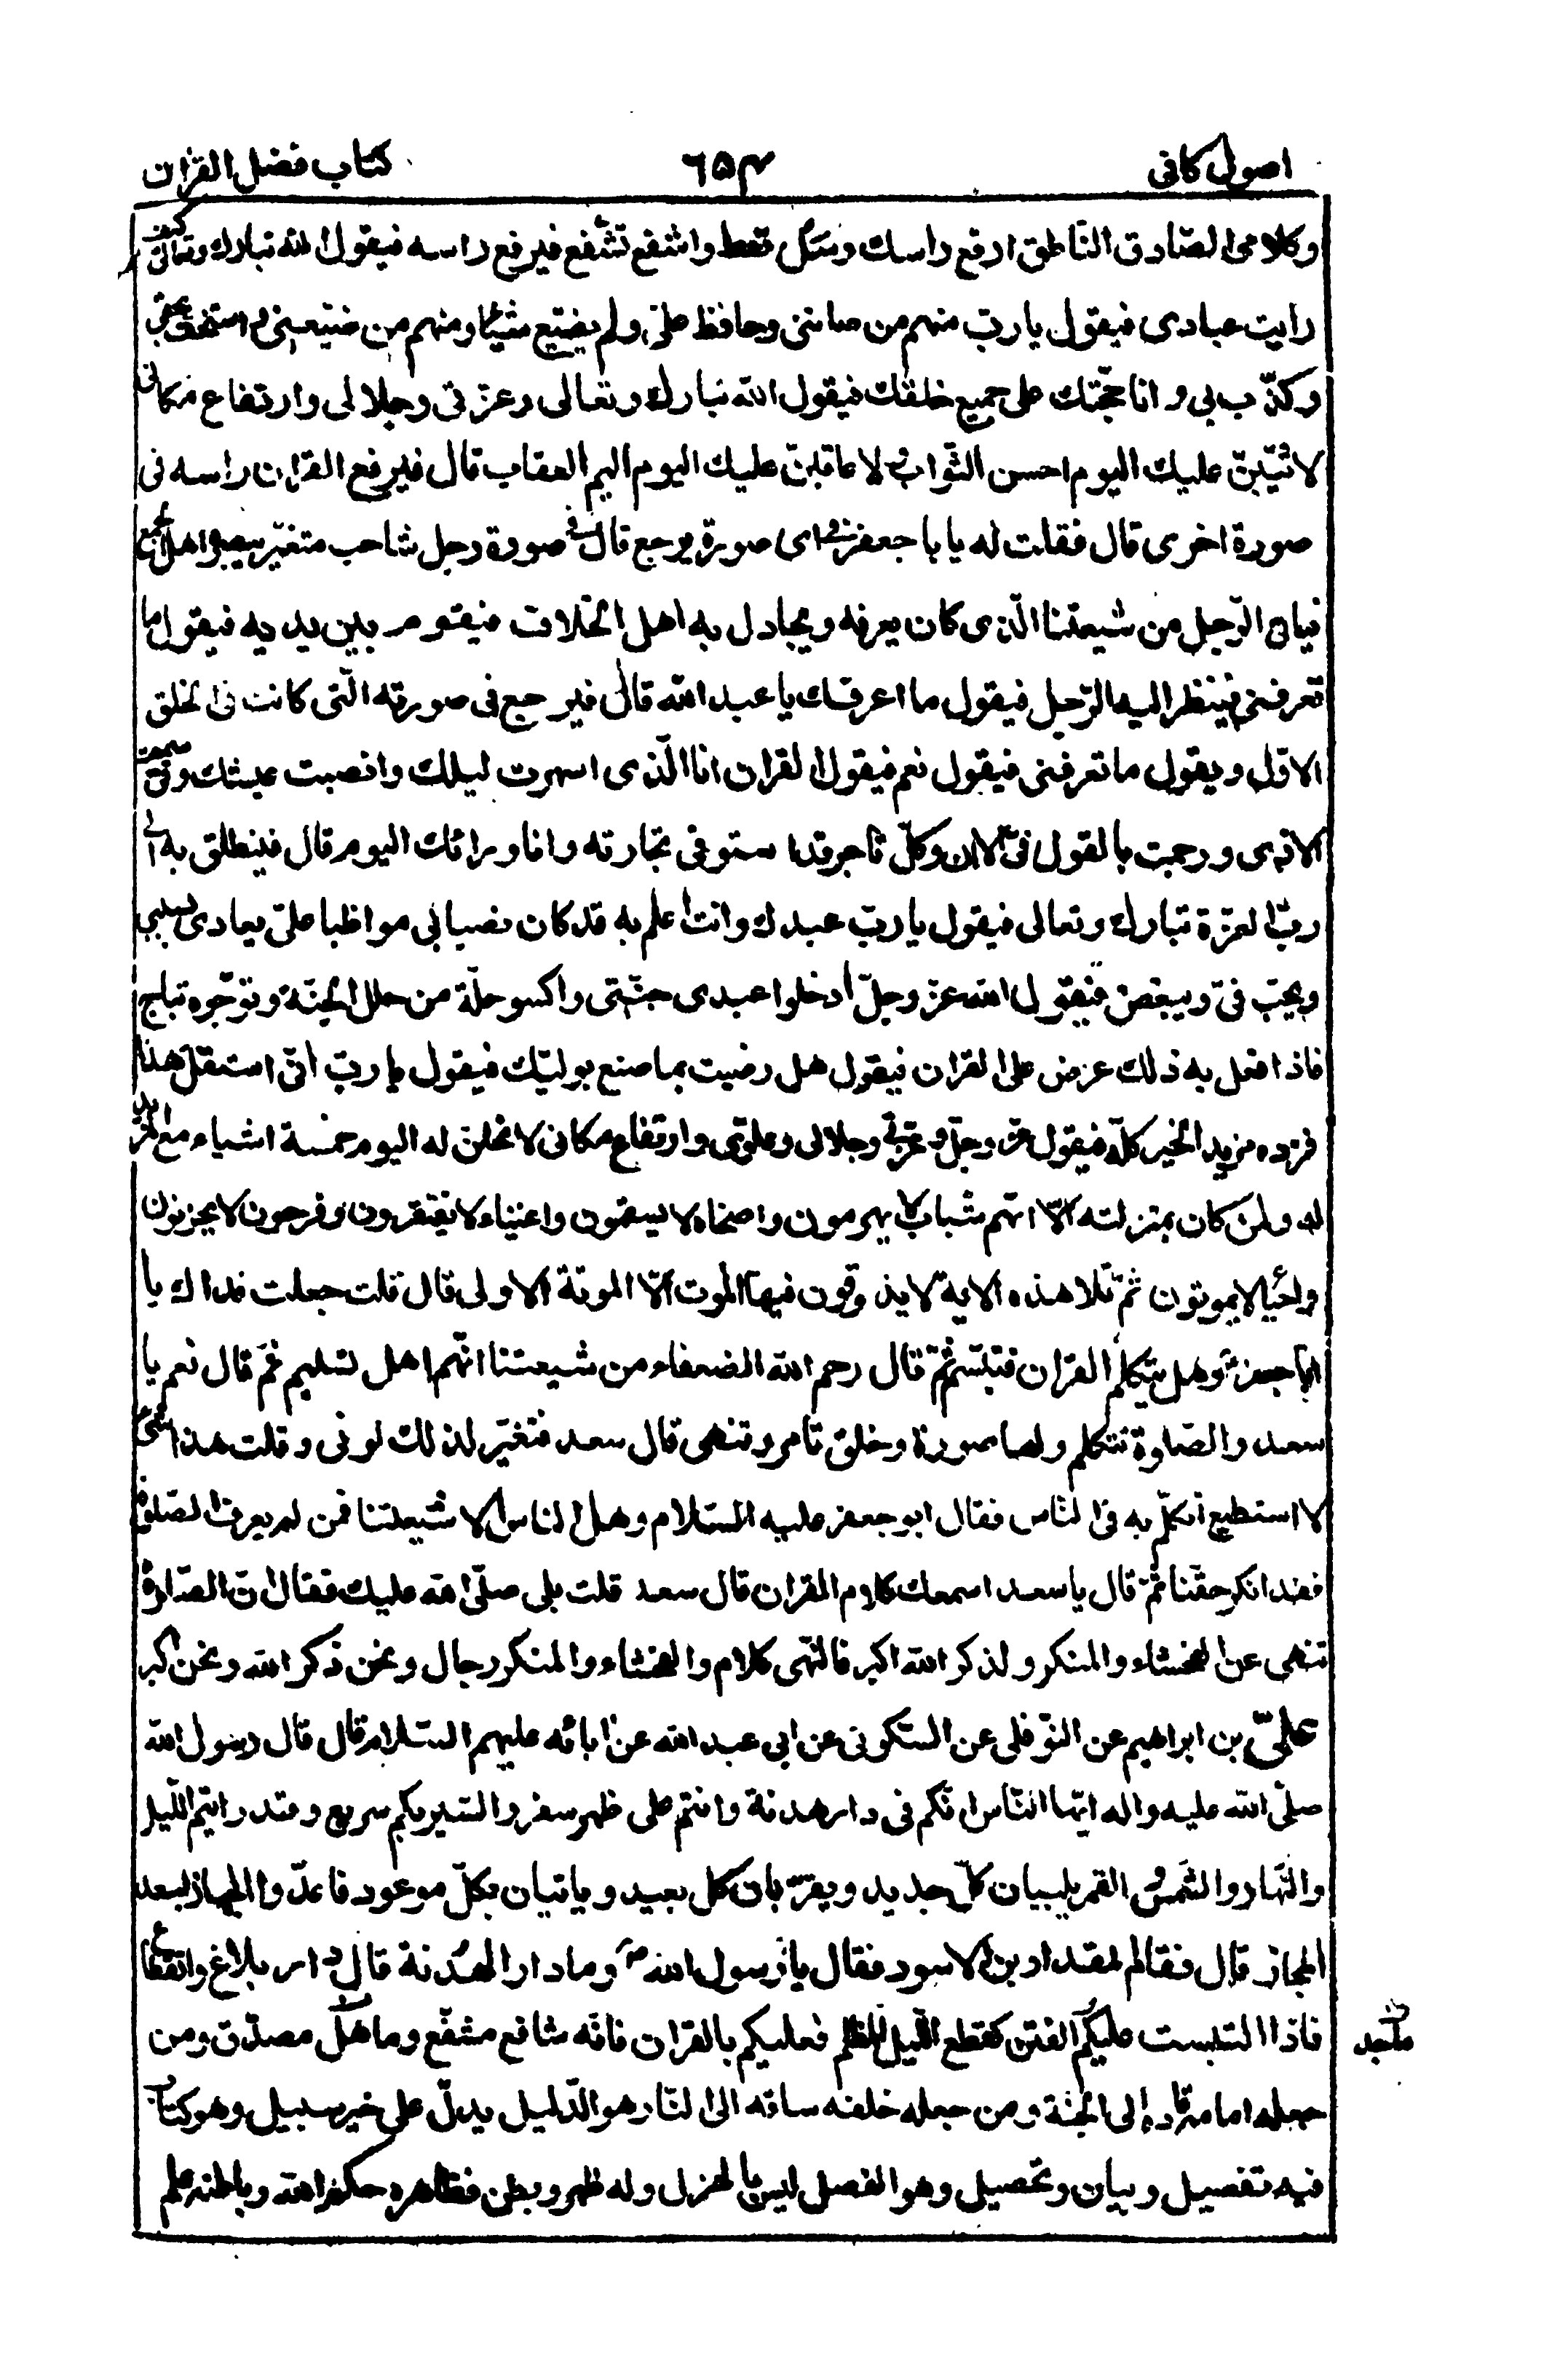 اصول کافی ٦۵۴ کتاب فضل القران
وکلامی الصّادق النّاطق ارفع راسك وسَل تعط واشفع تشفّع فیرفع راسه فیقول الله تبارك وتعالی کیف
رایت عبادی فیقول یا ربّ منهم من صاننی وحافظ علیّ ولم یضیّع شیئا ومنهم من ضیّعنی و استخفّ بحقی
وکذّب بی و انا حجّتك علی جمیع خلقك فیقول الله تبارك وتعالی وعزتی وجلالی وارتفاع مکانی
لاثیّبنّ علیك الیوم احسن الثّواب ولاعاقبنّ علیك الیوم الیم العقاب قال فیرفع القران راسه فی
صورة اخری قال فقلت له یا با جعفر فی ای صورة یرجع قال فی صورة رجل شاحب متغیّر یبصره اهل الجمع
فیاتی الرّجل من شیعتنا الّذی کان یعرفه ویجادل به اهل الخلاف فیقوم بین یدیه فیقول ما
تعرفنی فینظر الیه الرّجل فیقول ما اعرفك یا عبد الله قال فیرجع فی صورته الّتی کانت فی الخلق
الاوّل ویقول ما تعرفنی فیقول نعم فیقول القران انا الّذی اسهرت لیلك وانصبت عیشك وفیّ سمعت
الاذی ورجمت بالقول فیّ الا وان وکلّ تاجر قد استوفی تجارته وانا ورائك الیوم قال فینطلق به الی
ربّ العزّة تبارك وتعالی فیقول یا ربّ عبدك وانت اعلم به قد کان نصبا بی مواظبا علیّ یعادی بسببی
ویحبّ فیّ ویبغض فیقول الله عزّ وجلّ ادخلوا عبدی جنّتی واکسوه حلّة من حلل الجنّة وتوّجوه بتاج
فاذا فعل به ذلك عرض علی القران فیقول هل رضیت بما صنع بولیّك فیقول یا ربّ انّی استقلّ هذا
فزده مزید الخیر کلّه فیقول عزّ وجلّ وعزّتی وجلالی وعلوّی وارتفاع مکانی لانحلنّ له الیوم خمسة اشیاء مع المزید
له ولمن کان بمنزلته الا انّهم شباب لا یهرمون واصحّاء لا یسقمون واغنیاء لا یفتقرون وفرحون لا یحزنون
واحیاء لا یموتون ثمّ تلا هذه الایة لا یذوقون فیها الموت الّا الموتة الاولی قال قلت جعلت فداك یا
ابا جعفر وهل یتکلّم القران فتبسّم ثمّ قال رحم الله الضعفاء من شیعتنا انّهم اهل تسلیم ثمّ قال نعم یا
سعد والصّلوة تتکلم ولها صورة وخلق تامر وتنهی قال سعد فتغیّر لذلك لونی وقلت هذا شیء
لا استطیع اتکلّم به فی النّاس فقال ابو جعفر علیه السّلام وهل الناس الا شیعتنا فمن لم یعرف الصّلوة
فقد انکر حقّنا ثمّ قال یا سعد اسمعك کلام القران قال سعد قلت بلی صلّی الله علیك فقال انّ الصّلوة
تنهی عن الفحشاء والمنکر ولذکر الله اکبر فالنّهی کلام والفحشاء والمنکر رجال ونحن ذکر الله ونحن اکبر
علیّ بن ابراهیم عن النوّفلی عن السّکونی عن ابی عبد الله عن ابائه علیهم السّلام قال قال رسول الله
صلّی الله علیه واله ایّها النّاس انّکم فی دار هدنة وانتم علی ظهر سفر والسّیر بکم سریع وقد رایتم اللّیل
والنّهار والشّمس والقمر یبلیان کلّ جدید ویقرّبان کل بعید ویاتیان بکلّ موعود فاعدّوا الجهاز لبعد
المجاز قال فقام المقداد بن الاسود فقال یا رسول الله ص وما دار الهُدنة قال دار بلاغ وانقطاع
فاذا التبست علیکم الفتن کقطع اللّیل المظلم فعلیکم بالقران فانّه شافع مشفّع وماحل مصدّق ومن
جعله امامه قاده إلی الجنّة ومن جعله خلفه ساقه الی النّار وهو الدّلیل یدلّ علی خیر سبیل وهو کتاب
فیه تفصیل وبیان وتحصیل وهو الفصل لیس بالهزل وله ظهر وبطن فظاهره حکم الله وباطنه علم